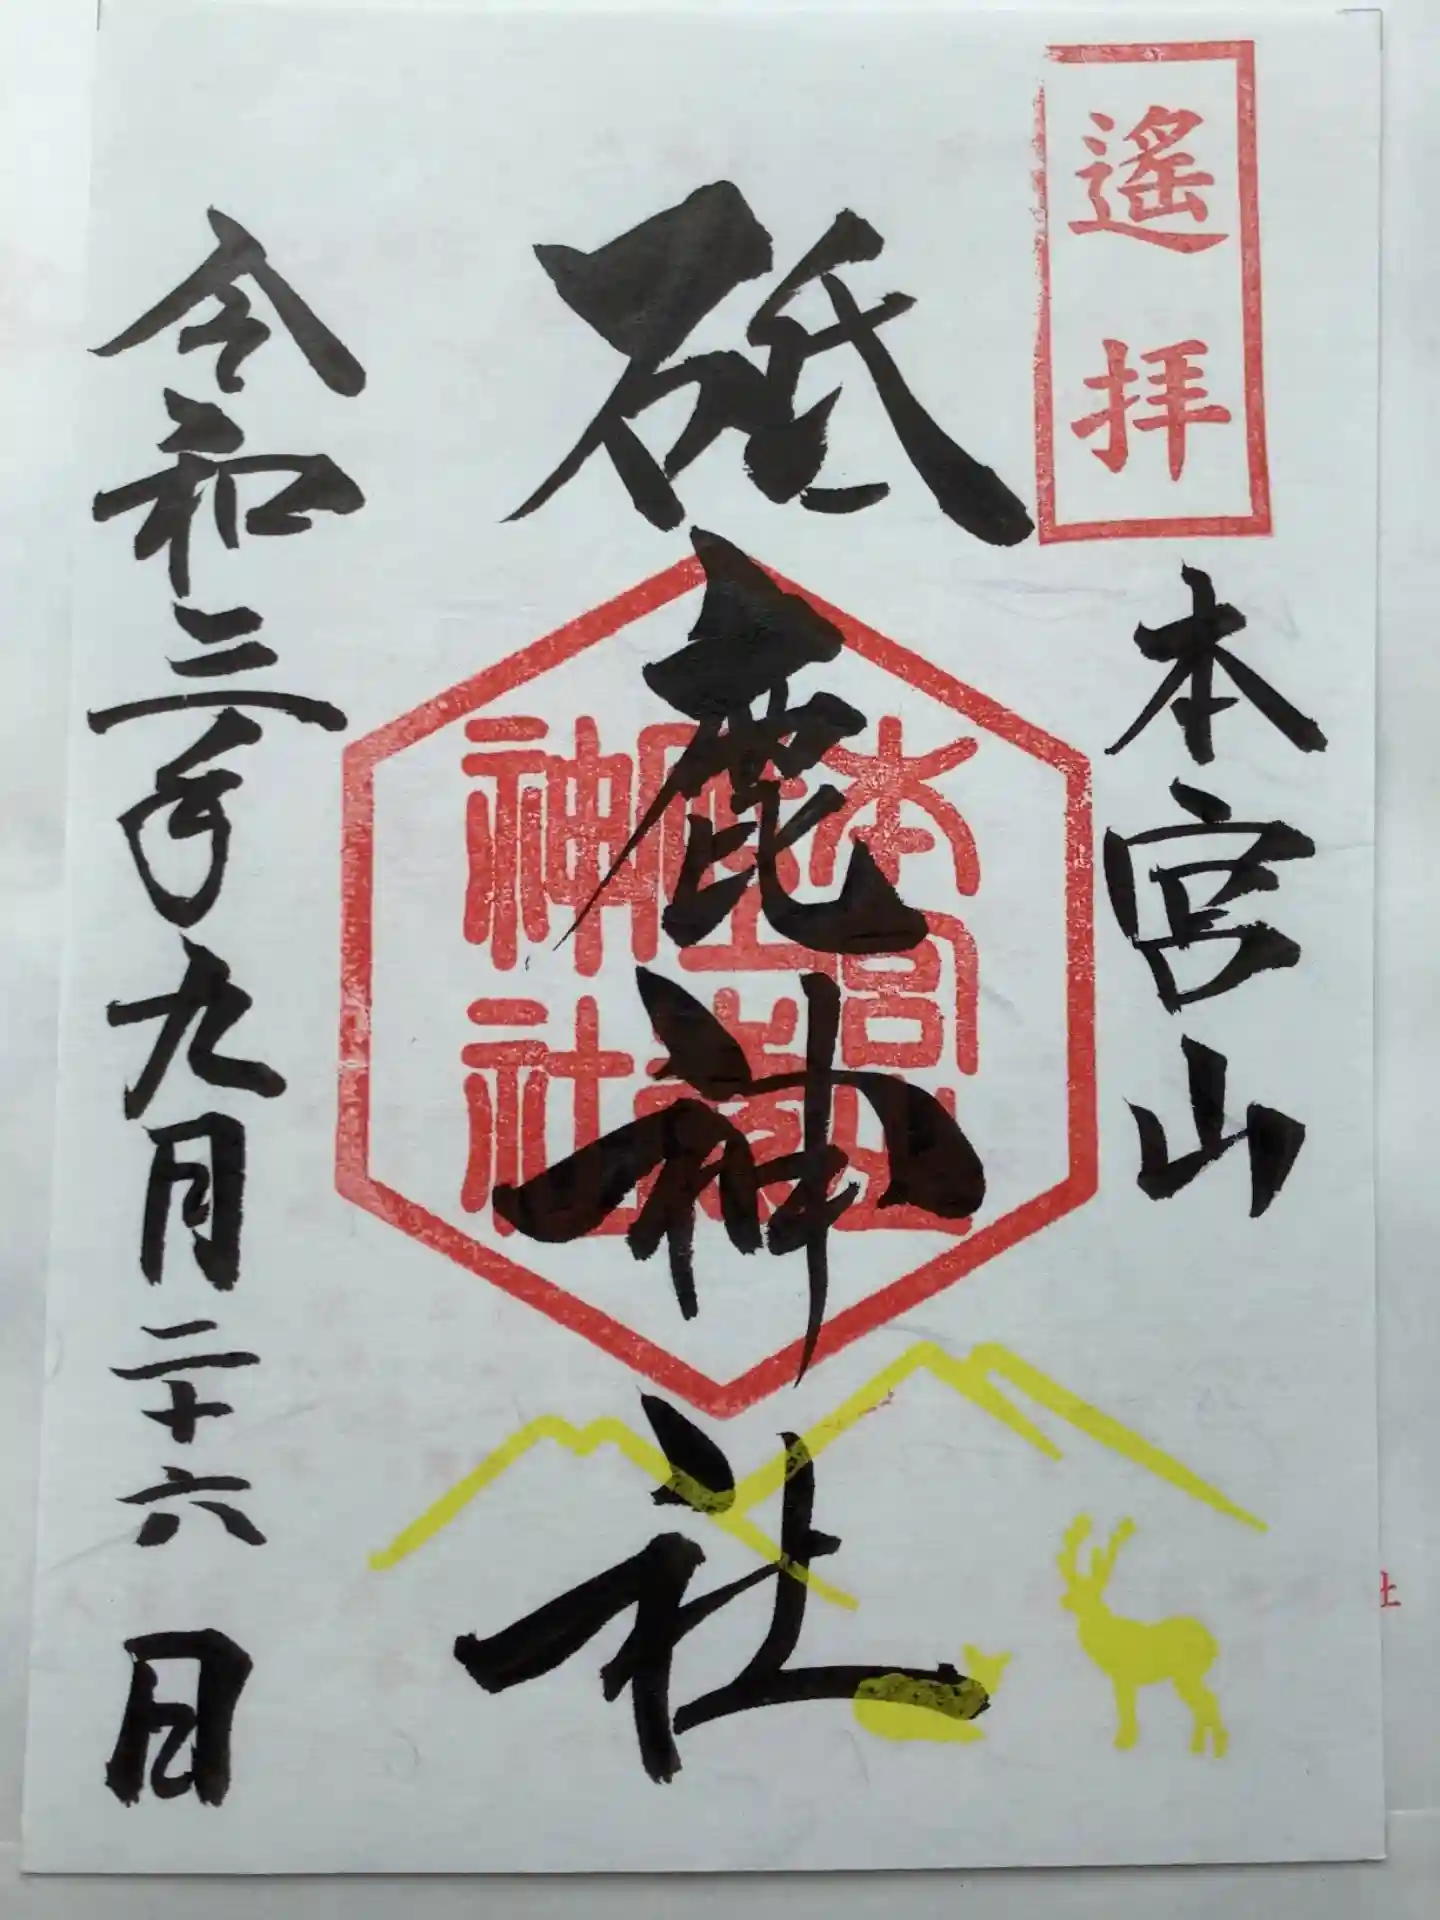 遙拝
本宮山
砥鹿神社
令和三年九月二十六日
社